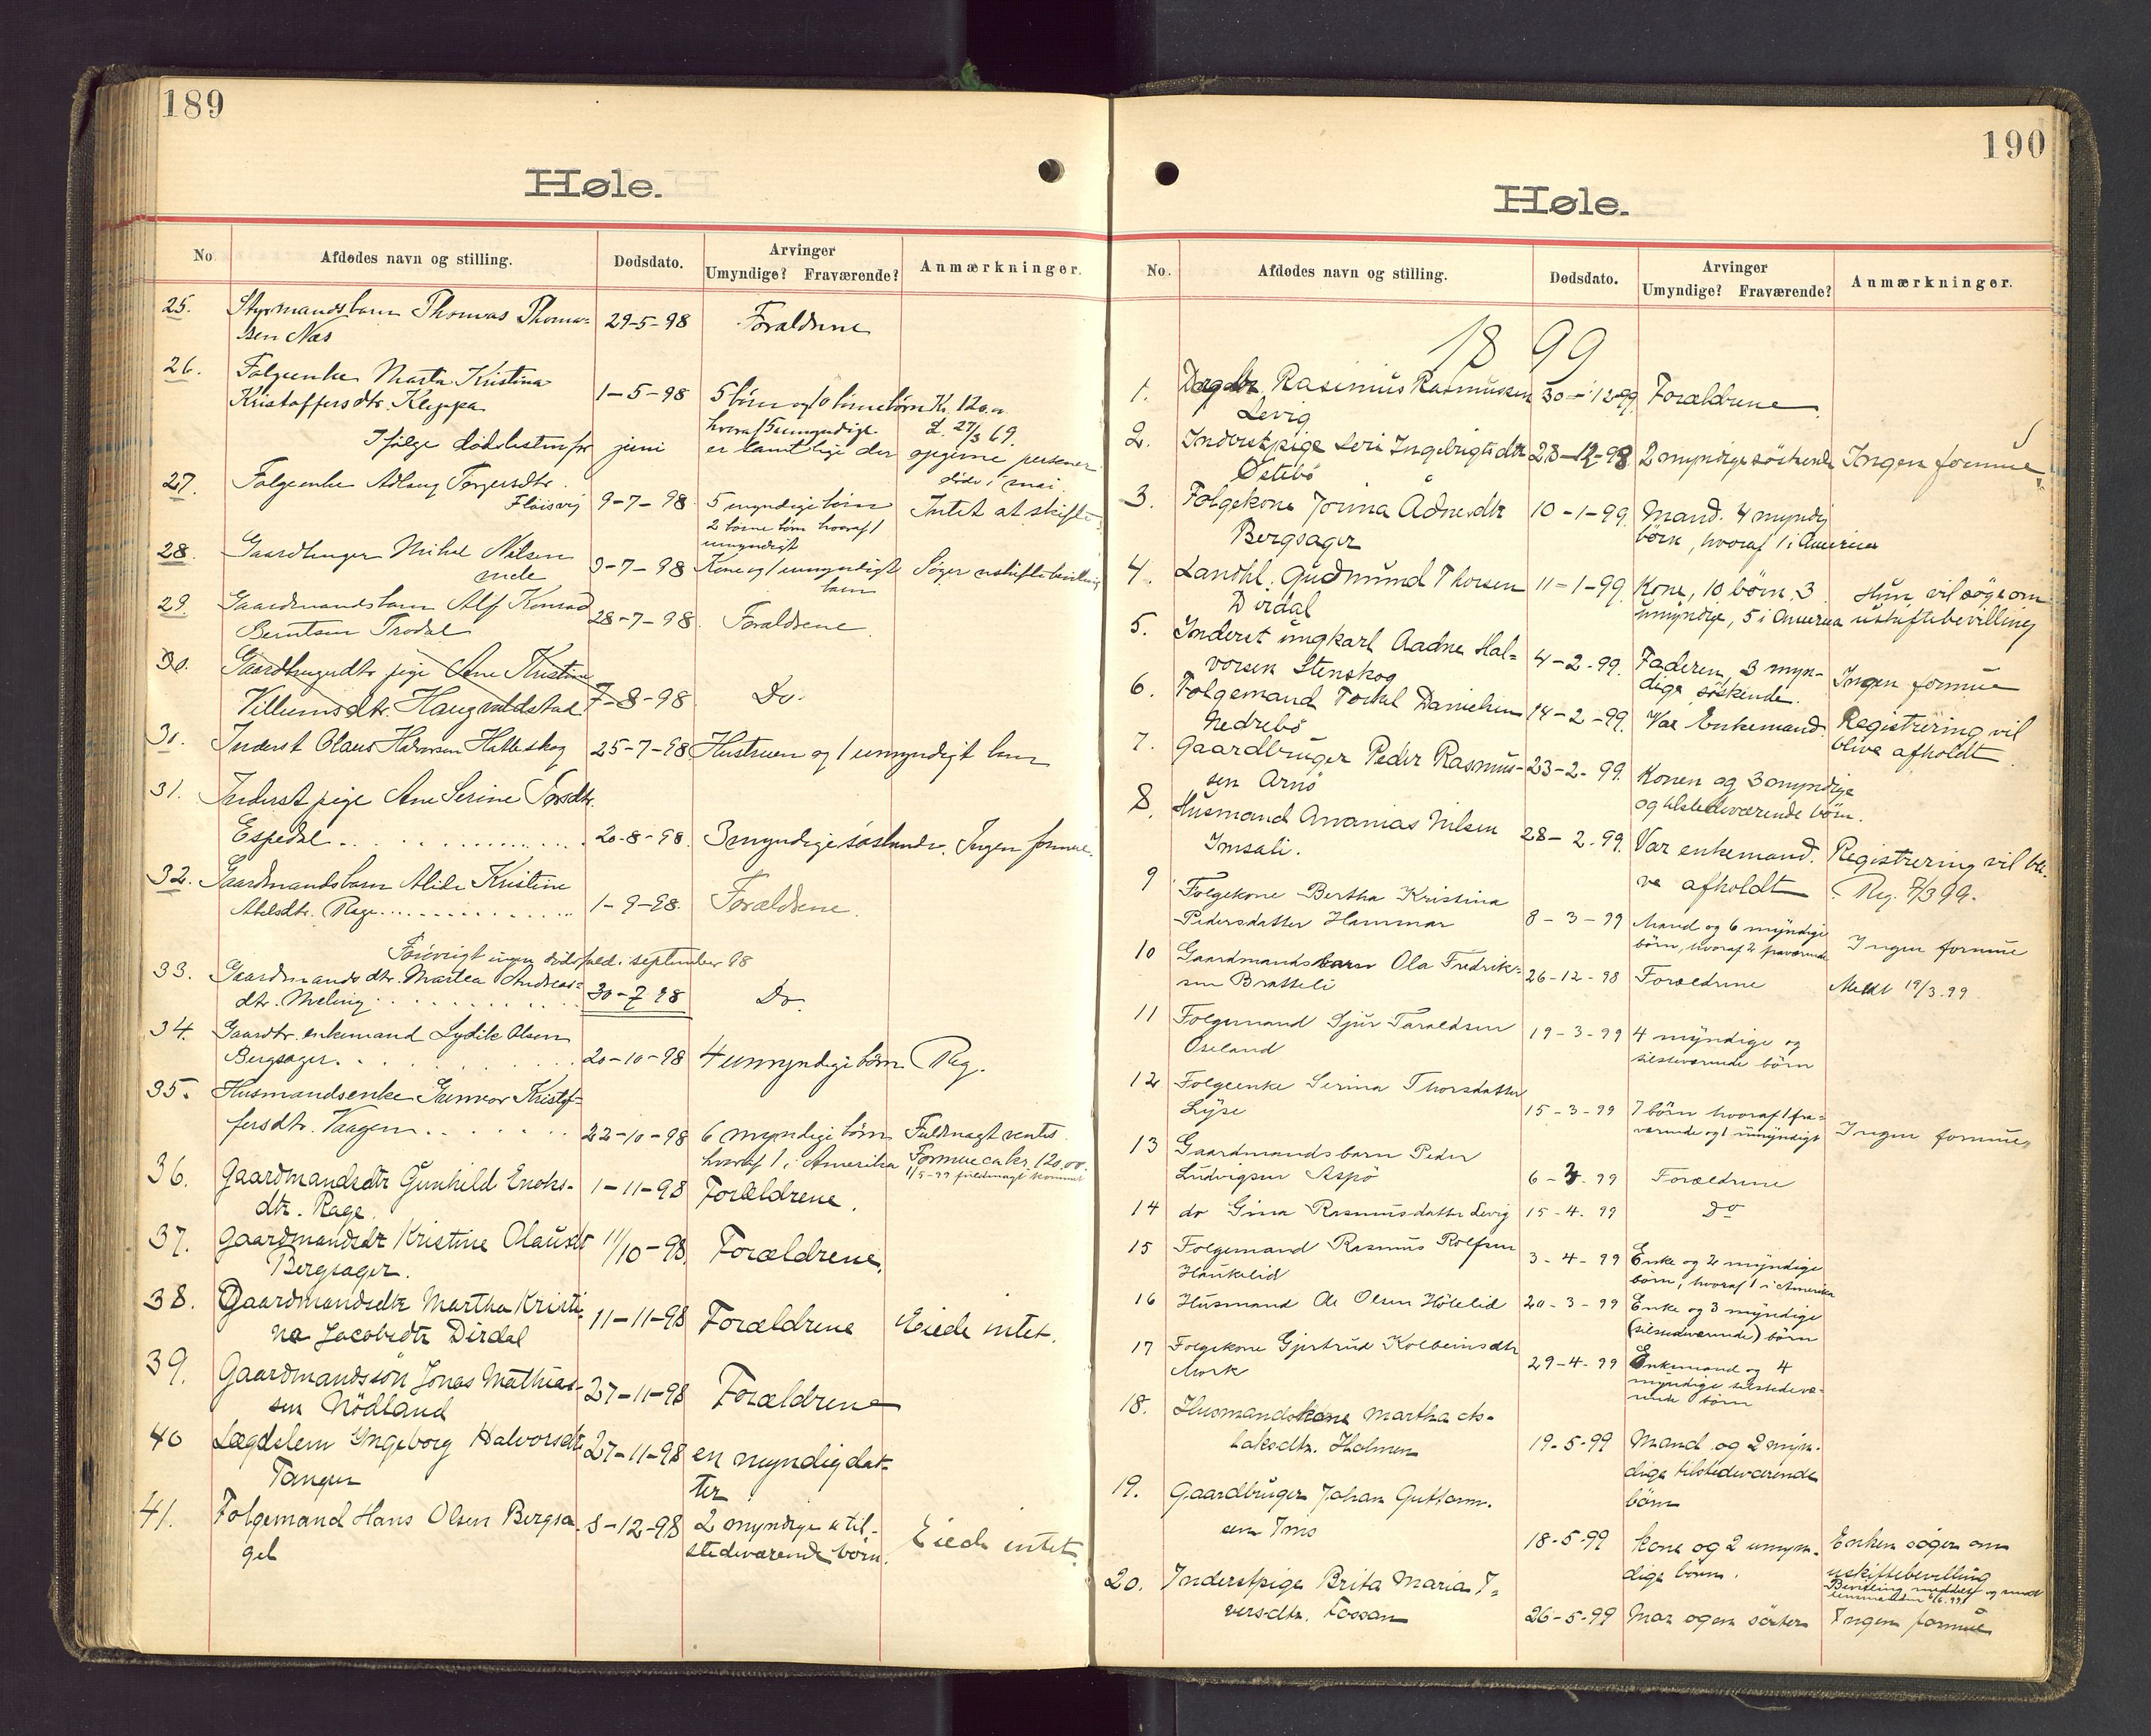 189
Høle.
No
Afdødes navn og stilling.
Dødsdato.
Arvinger
Umyndige? Fraværende?
Anmærkninger.
25. Styrmandsbarn Thomas Thoma=
sen Næs
29-5-98 Forældrene
26. Folgeenke Marta Kristina
Kristoffersdtr. Kleppa
1-5-98 5 børn og 10 børnebørn Kr. 120.
hvoraf 5 umyndige.
Ifølge dødslisten for juni er samtlige der
personer
døde i mai.
27. Folgeenke Torgersdtr.
9-7-98 5 myndige børn Intet at skifte
2 børnebørn hvoraf 1
umyndigt
28. Gaardbruger Mikal Nilsen
9-7-98 Kone og 1 umyndigt
barn
Søger uskiftebevilling
29. Gaardmandsbarn Alf Konrad
Berntsen Frodal
28-7-98 Forældrene
30. Gaardbrugerdtr. pige Ane Kristine
Villumsdtr. Haugmldstad
7-8-98 Do.
30. Inderst Olaus Halvorsen Halleskog 25-7-98 Hustruen og 1 umyndigt barn
31. Inderst pige Ane Serine Torsdtr.
Espedal 20-8-98. 3 myndige søskende. Ingen formue.
32. Gaardmandsbarn Alida Kristine
Abelsdtr. Rage 1-9-98. Forældrene.
Forøvrigt ingen dødsfald i september 98
33. Gaardmandsdtr. Martea Andreas=
dtr. Meling 30-7-98 Do.
34. Gaardbr. enkemand Lydik Olsen
Bergsager. 20-10-98 4 umyndige børn Reg.
35. Husmandsenke Gunvor Kristof=
fersdtr. Vaagen 22-10-98 6 myndige børn Fuldmagt ventes.
hvoraf 1 i Amerika Formue ca kr. 120.00.
1/5-99 fuldmagt kommet
36. Gaardmandsdtr Gunhild Enoks-
dtr. Rage.
1-11-98 Forældrene.
37. Gaardmandsdtr Kristine Olausdtr
Bergsager.
11/10-98. Forældrene.
38. Gaardmandsdtr Martha Kristi
ne Jacobsdtr Dirdal
11-11-98 Forældrene Eiede intet.
39. Gaardmandssøn Jonas Mathias-
sen Nødland
27-11-98 Forældrene
40 Lægdslem Ingeborg Halvorsdtr
Tangen
27-11-98 en myndig dat-
ter
41. Folgemand Hans Olsen Bergsa
gel
8-12-98 2 myndige & til-
stedeværende børn. Eiede intet.
190
Høle.
No.
Afdødes navn og stilling.
Dødsdato.
Arvinger
Umyndige? Fraværende?
Anmærkninger.
1899
1. Rasmus Rasmussen
Levig
30-12-99. Forældrene
2. Inderstpige Seri Ingebrigtsdtr
Østebø
23-12-98 2 myndige søskende Ingen formue
3. Folgekone Jorina Ådnesdtr
Bergsager
10-1-99. Mand. 4 myndig
børn, hvoraf 1 i Amerika
4. Landhl. Gudmund Thorsen
Dirdal
11-1-99. Kone, 10 børn. 3
umyndige, 5 i Amerika
Hun vil søge om
uskiftebevilling
5. Inderst ungkarl Aadne Hal=
vorsen Stenskog
4-2-99. Faderen, 3 myn-
dige søskende.
Ingen formue
6. Folgemand Torkel Danielsen
Nedrebø
14-2-99. Var Enkemand. Registrering vil
blive afholdt.
7. Gaardbruger Peder Rasmus-
sen Arnø
23-2-99. Konen og 3 myndige
og tilstedeværende børn.
8. Husmand Ananias Nilsen
Imsali.
28-2-99. Var enkemand. Registrering vil bli-
ve afholdt. Reg. 7/3 99.
9 Folgekone Bertha Kristina
Pedersdatter Hammar
8-3-99 Mand og 6 myndige
børn, hvoraf 2 fraværende
Ingen formue
10 Gaardmandsbarn Ola Fredrik=
sen Bratteli
26-12-98 Forældrene Meldt 19/3.99
11 Folgemand Sjur Taraldsen
Oseland
19-3-99 4 myndige og
tilstedeværende børn
12 Folgeenke Serina Thorsdatter
Lyse
15-3-99 7 børn hvoraf 1 fra=
værende og 1 umyndigt
Ingen formue
13 Gaardmandsbarn Peder
Ludvigsen Aspø
6-3-99 Forældrene
14 do Gina Rasmusdatter Levig 15-4-99 Do
15 Folgemand Rasmus Rolfsen
Haukelid
3-4-99 Enke og 2 myndige
børn, hvoraf 1 i Amerika
16 Husmand Ole Olsen Hølelid 20-3-99 Enke og 3 myndige
(tilstedeværende) børn
17 Folgekone Gjertrud Kolbeinsdtr
Mork
29-4-99 Enkemand og 4
myndige tilstedevæ-
rende børn
18. Husmandskone Martha As-
laksdtr. Holmen
19-5-99 Mand og 2 myn-
dige tilstedeværende
børn
19. Gaardbruger Johan Guttorm-
sen Ims
18-5-99 Kone og 2 umyn-
dige børn.
Enken søger om
uskiftebevilling
Bevilling meddelt og sendt
lensmanden 6/6.99
20. Inderstpige Brita Maria I=
versdtr. Fossan
26-5-99 Mor og en søster Ingen formue